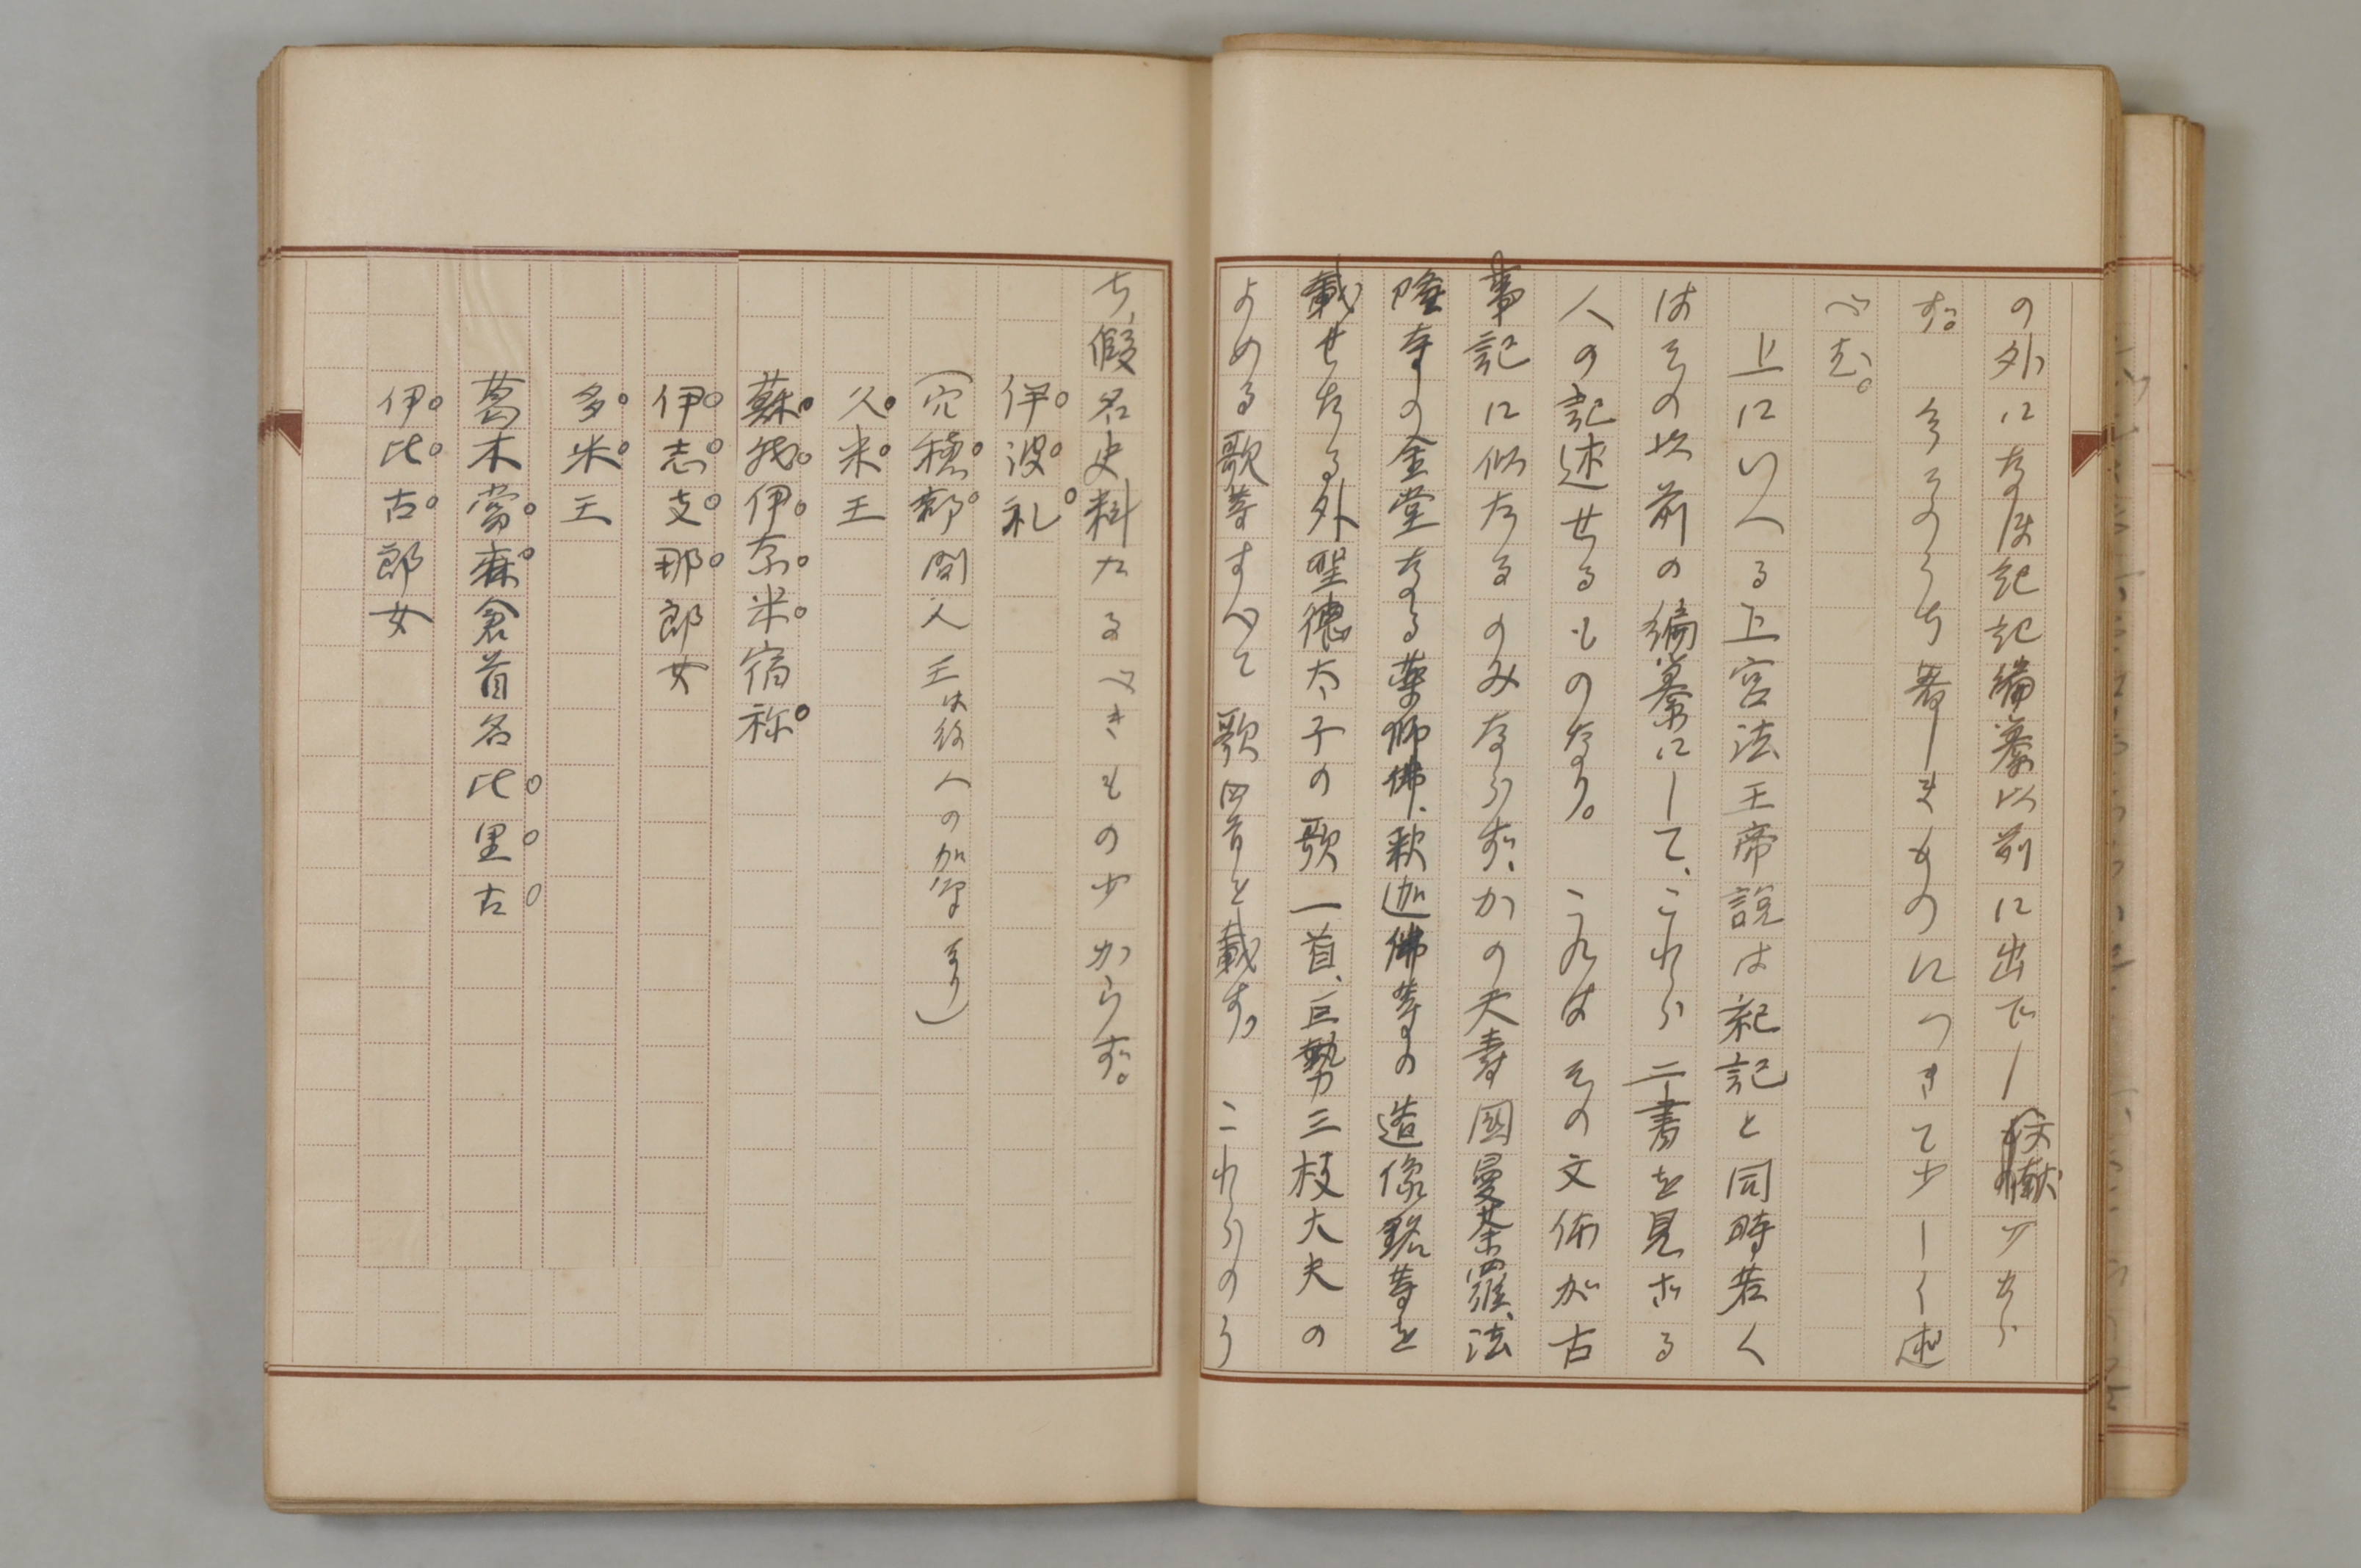 の外になほ紀記編纂以前に出でし文献少から
ず。今そのうち著しきものにつきて少しく述
べむ。
上にいへる上宮法王帝説は紀記と同時若く
はその以前の編纂にして、これら二書を見ざる
人の記述せるものなり。これはその文体が古
事記に似たるのみならず、かの天寿國曼荼羅、法
隆寺の金堂なる薬師佛、釈迦佛等の造像銘等を
載せたる外聖徳太子の歌一首、巨勢三杖大夫の
よめる歌等すべて歌四首を載す。これらのう
ち、假名史料たるべきもの少からず。
伊。波。礼。
(穴穂。部。間人王は後人の加筆なり)
久。米。王
蘇。我。伊。奈。米。宿祢。
伊。志。支。那。郎女
多。米。王
葛木當。麻。倉首名比。里。古。
伊。比。古。郎女